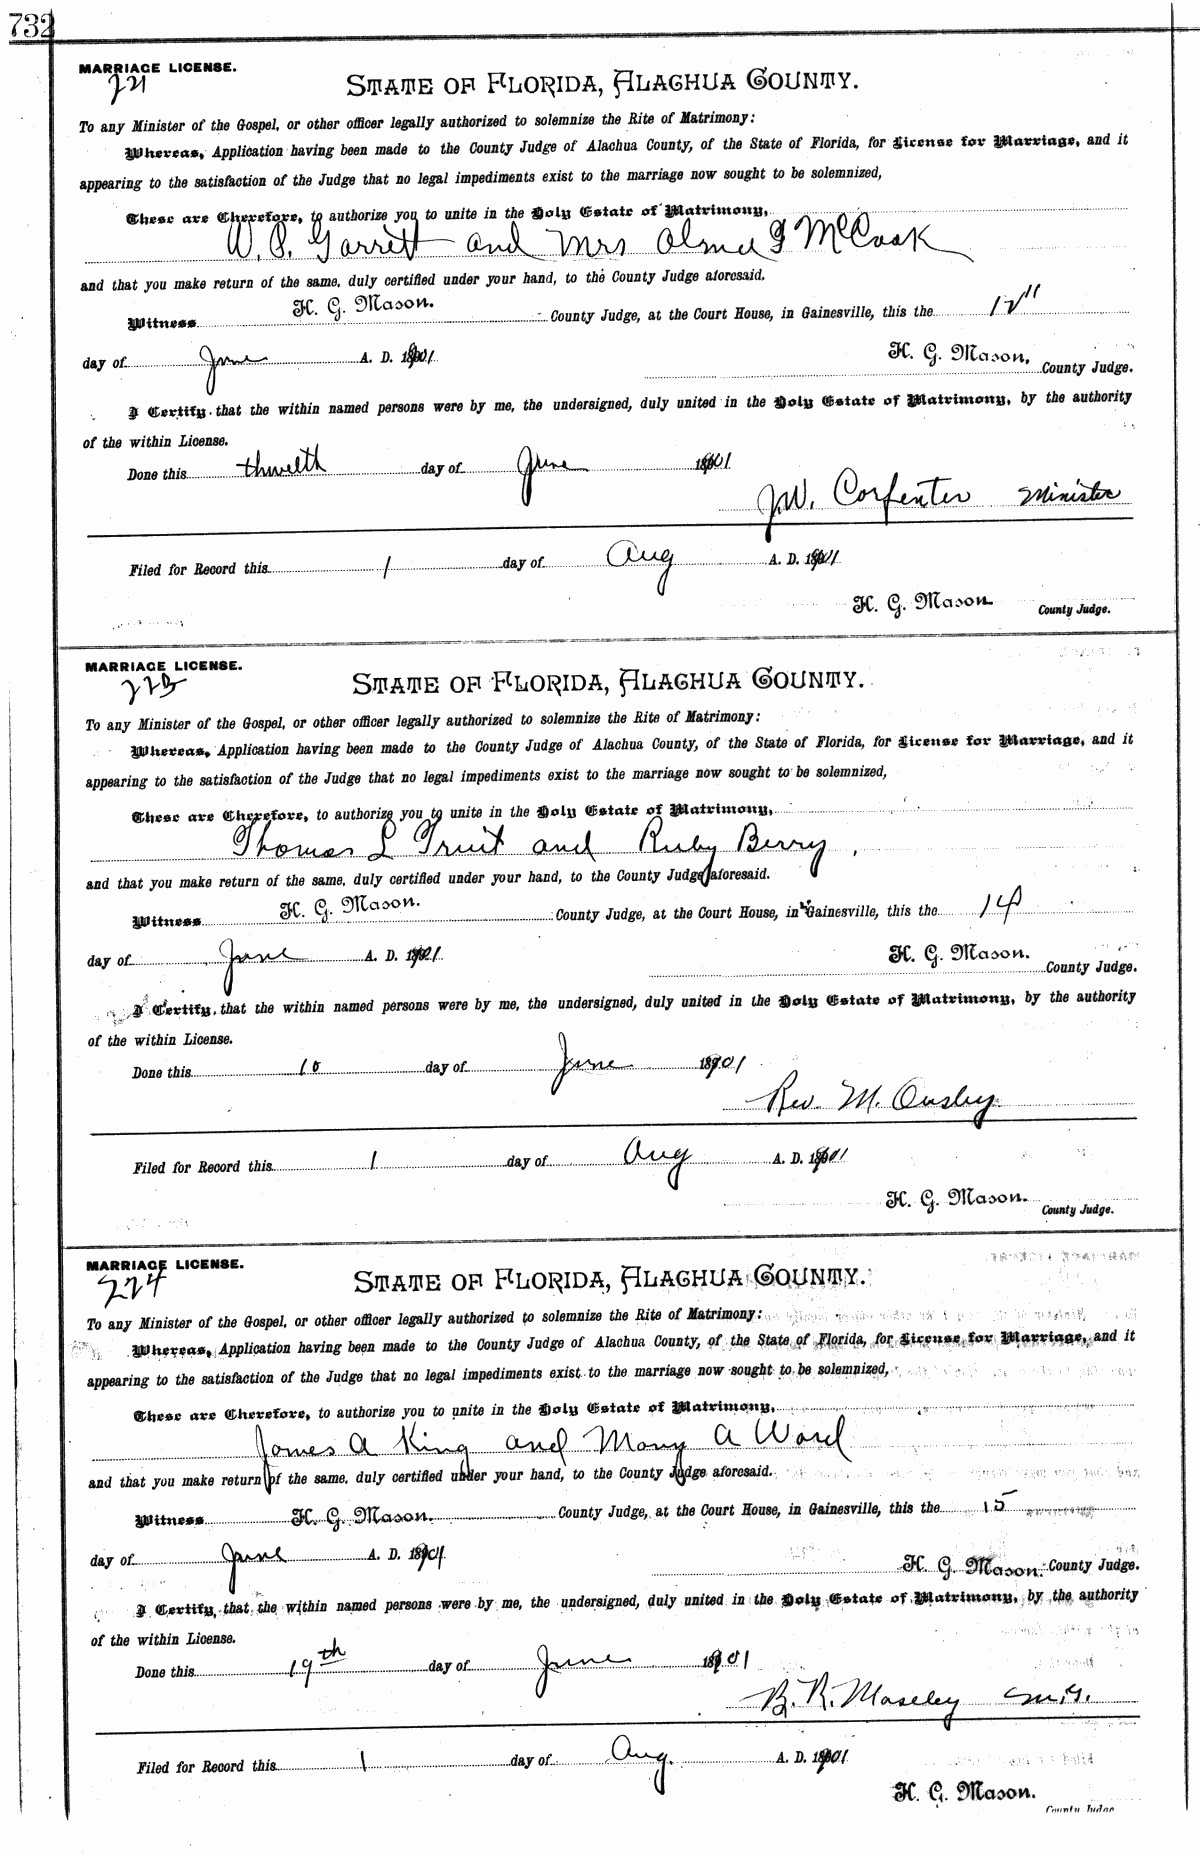 732
MARRIAGE LICENSE.
STATE OF FLORIDA, ALACHUA COUNTY.
To any Minister of the Gospel, or other officer legally authorized to solemnize the Rite of Matrimony:
Whereas, Application having been made to the County Judge of Alachua County, of the State of Florida, for License for Marriage, and it
appearing to the satisfaction of the Judge that no legal impediments exist to the marriage now sought to be solemnized,
These are Therefore, to authorize you to unite in the Holy Estate of Matrimony,
Garrett and Mrs McCook
and that you make return of the same, duly certified under your hand, to the County Judge aforesaid.
Witness H. G. Mason. County Judge, at the Court House, in Gainesville, this the 12"
day of June A. D. 1901
H. G. Mason, County Judge.
I Certify that the within named persons were by me, the undersigned, duly united in the Holy Estate of Matrimony, by the authority
of the within License.
Done this thwelth day of June 1901
J. W. Carpenter Minister
Filed for Record this 1 day of Aug A. D. 1901
H. G. Mason County Judge.
MARRIAGE LICENSE.
223
STATE OF FLORIDA, ALACHUA COUNTY.
To any Minister of the Gospel, or other officer legally authorized to solemnize the Rite of Matrimony:
Whereas, Application having been made to the County Judge of Alachua County, of the State of Florida, for License for Marriage, and it
appearing to the satisfaction of the Judge that no legal impediments exist to the marriage now sought to be solemnized,
These are Therefore, to authorize you to unite in the Holy Estate of Matrimony,
Thomas L Truit and Ruby Berry
and that you make return of the same, duly certified under your hand, to the County Judge aforesaid.
Witness H. G. Mason. County Judge, at the Court House, in Gainesville, this the 14
day of June A. D. 1901
H. G. Mason. County Judge.
I Certify, that the within named persons were by me, the undersigned, duly united in the Holy Estate of Matrimony, by the authority
of the within License.
Done this day of June 1901
Rev. M. Ousley
Filed for Record this 1 day of Aug A. D. 1901
H. G. Mason. County Judge.
MARRIAGE LICENSE.
224
STATE OF FLORIDA, ALACHUA COUNTY.
To any Minister of the Gospel, or other officer legally authorized to solemnize the Rite of Matrimony:
Whereas, Application having been made to the County Judge of Alachua County, of the State of Florida, for License for Marriage, and it
appearing to the satisfaction of the Judge that no legal impediments exist to the marriage now sought to be solemnized,
These are Therefore, to authorize you to unite in the Holy Estate of Matrimony,
James A King and Mary A Ward
and that you make return of the same, duly certified under your hand, to the County Judge aforesaid.
Witness H. G. Mason. County Judge, at the Court House, in Gainesville, this the 15
day of June A. D. 1901
H. G. Mason. County Judge.
I Certify, that the within named persons were by me, the undersigned, duly united in the Holy Estate of Matrimony, by the authority
of the within License.
Done this 19th day of June 1901
B. R. Moseley M.G.
Filed for Record this 1 day of Aug. A. D. 1901
H. G. Mason.
County Judge